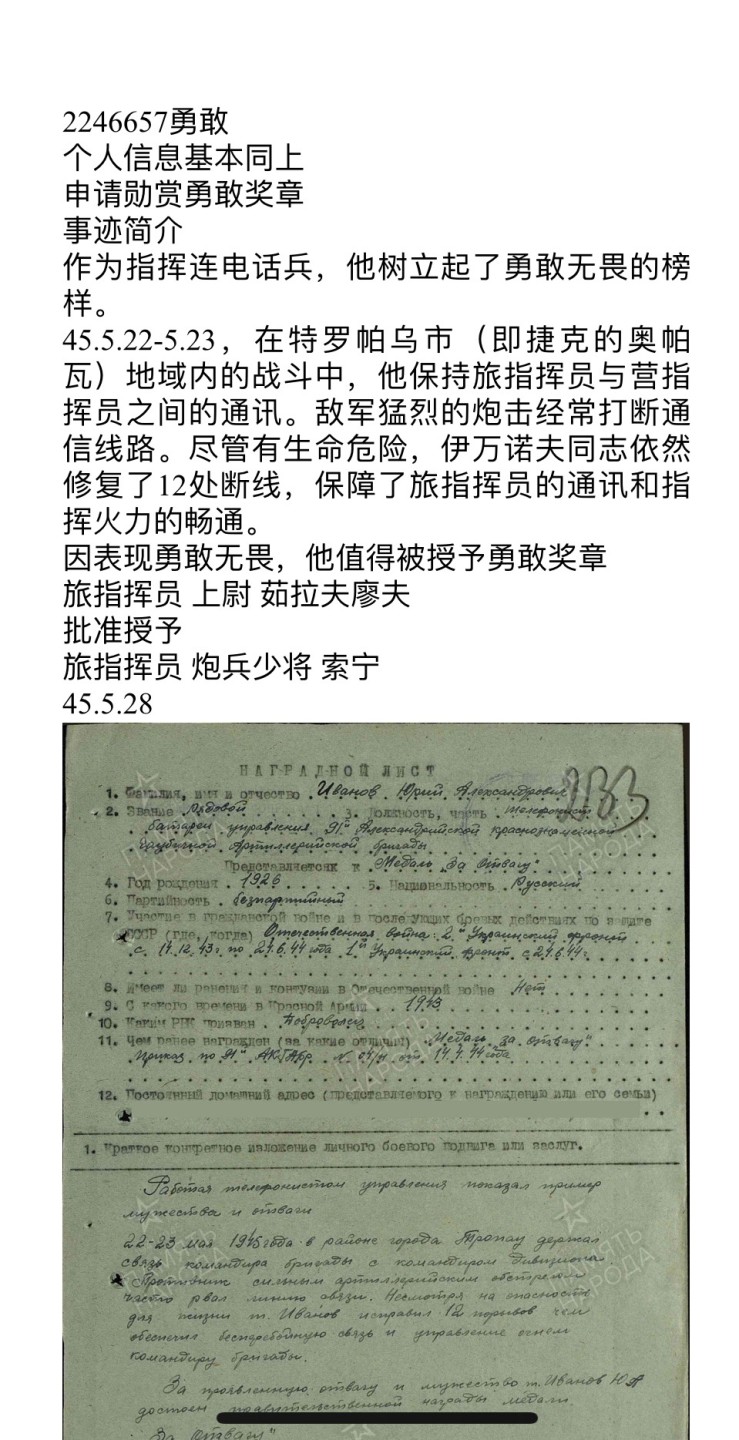 2246657勇敢
个人信息基本同上
申请勋赏勇敢奖章
事迹简介
作为指挥连电话兵，他树立起了勇敢无畏的榜
样。
45.5.22-5.23，在特罗帕乌市（即捷克的奥帕
瓦）地域内的战斗中，他保持旅指挥员与营指
挥员之间的通讯。敌军猛烈的炮击经常打断通
信线路。尽管有生命危险，伊万诺夫同志依然
修复了12处断线，保障了旅指挥员的通讯和指
挥火力的畅通。
因表现勇敢无畏，他值得被授予勇敢奖章
旅指挥员 上尉 茹拉夫廖夫
批准授予
旅指挥员 炮兵少将 索宁
45.5.28
НАГРАДНОЙ ЛИСТ
1. Фамилия, имя и отчество Иванов Юрий Александрович
2. Звание Рядовой 3. Должность, часть телефонист
батареи управления 91й Александрийской краснознаменной
гаубичной Артиллерийской бригады
Представляется к Медаль "За Отвагу"
4. Год рождения 1926 5. Национальность Русский
6. Партийность беспартийный
7. Участие в гражданской войне и в последующих боевых действиях по защите
СССР (где, когда) Отечественная война: 2й Украинский фронт
с 17.12.43г по 24.6.44 года 1й Украинский фронт с 24.6.44г
8. Имеет ли ранения и контузии в Отечественной войне Нет
9. С какого времени в Красной Армии 1943
10. Каким РВК призван
11. Чем ранее награжден (за какие отличия) Медаль "за отвагу"
Приказ по 91й от 14.4.44 года
12. Постоянный домашний адрес (представляемого к награждению или его семьи)
1. Краткое конкретное изложение личного боевого подвига или заслуг.
Работая телефонистом управления показал пример
мужества и отваги
22-23 мая 1945 года в районе города Тропау держал
связь командира бригады с командиром дивизиона.
Противник сильным артиллерийским обстрелом
часто рвал линию связи. Несмотря на опасность
для жизни т. Иванов исправил 12 порывов чем
обеспечил бесперебойную связь и управление огнем
командиру бригады.
За проявленную отвагу и мужество т. Иванов Ю А
достоин правительственной награды медали
"За Отвагу"